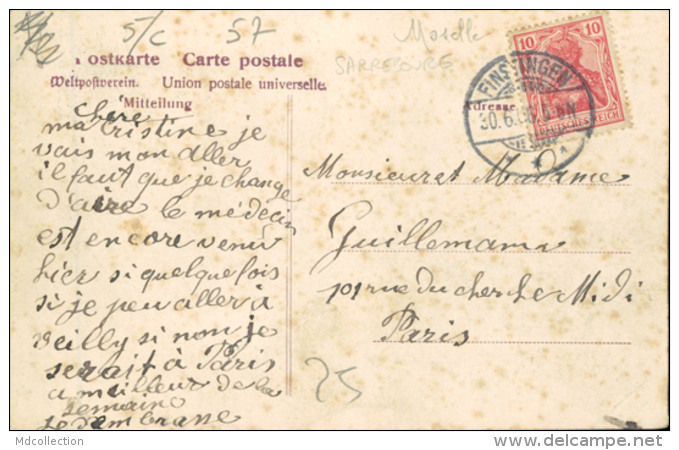 5/c 57 Moselle
SARREBOURG
Postkarte Carte postale
Weltpostverein. Union postale universelle.
Mitteilung
Adresse
10 10
DEUTSCHES REICH
FINSTINGEN
30.6.
chère
ma cristine je
vais mon aller
il faut que je change
d'aire le médecin
est encore venu
hier si quelque fois
si je peu aller à
veilly si non je
serait à Paris
a meilleur de la
semaine
je d'embrasse
Monsieur et Madame
Guillemann
101 rue du cherche Midi
Paris
25
Mdcollection
www.delcampe.net